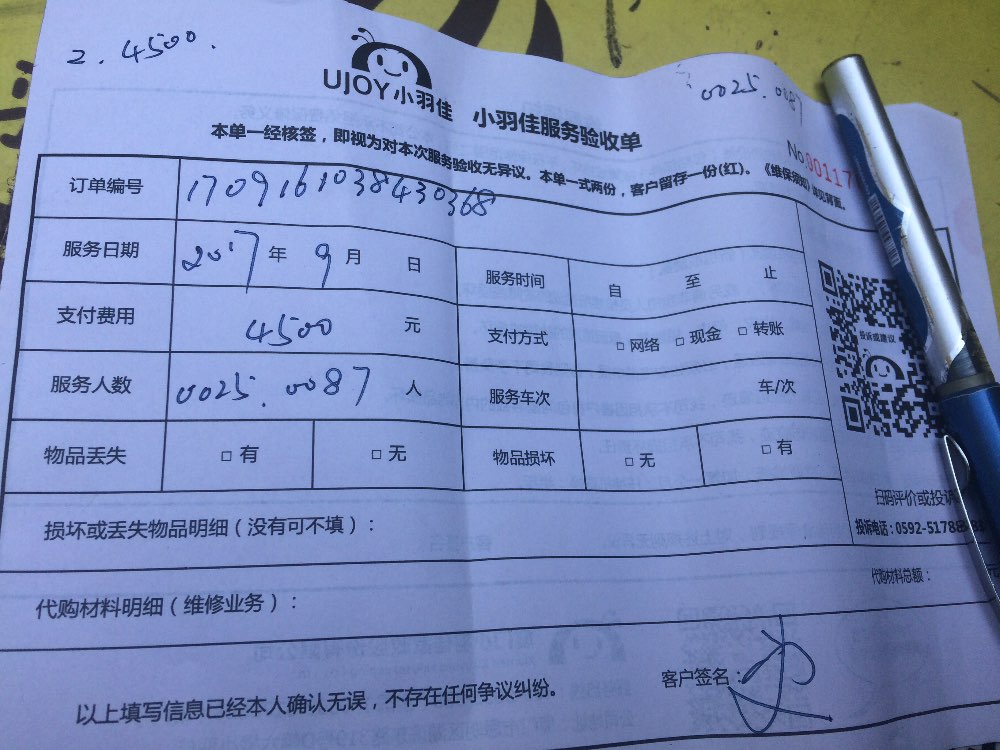 2. 4500.
0025.0087
UJOY小羽佳 小羽佳服务验收单
No.00117
本单一经核签，即视为对本次服务验收无异议。本单一式两份，客户留存一份(红)。《维保须知》详见背面。
订单编号 1709161038430368
服务日期 2017年 9月 日 服务时间 自 至 止
支付费用 4500 元 支付方式 □ 网络 □ 现金 □ 转账
投诉或建议
服务人数 0025.0087 人 服务车次 车/次
物品丢失 □ 有 □ 无 物品损坏 □ 无 □ 有
扫码评价或投诉
损坏或丢失物品明细（没有可不填）：
投诉电话：0592-5178
代购材料总额：
代购材料明细（维修业务）：
客户签名：
以上填写信息已经本人确认无误，不存在任何争议纠纷。